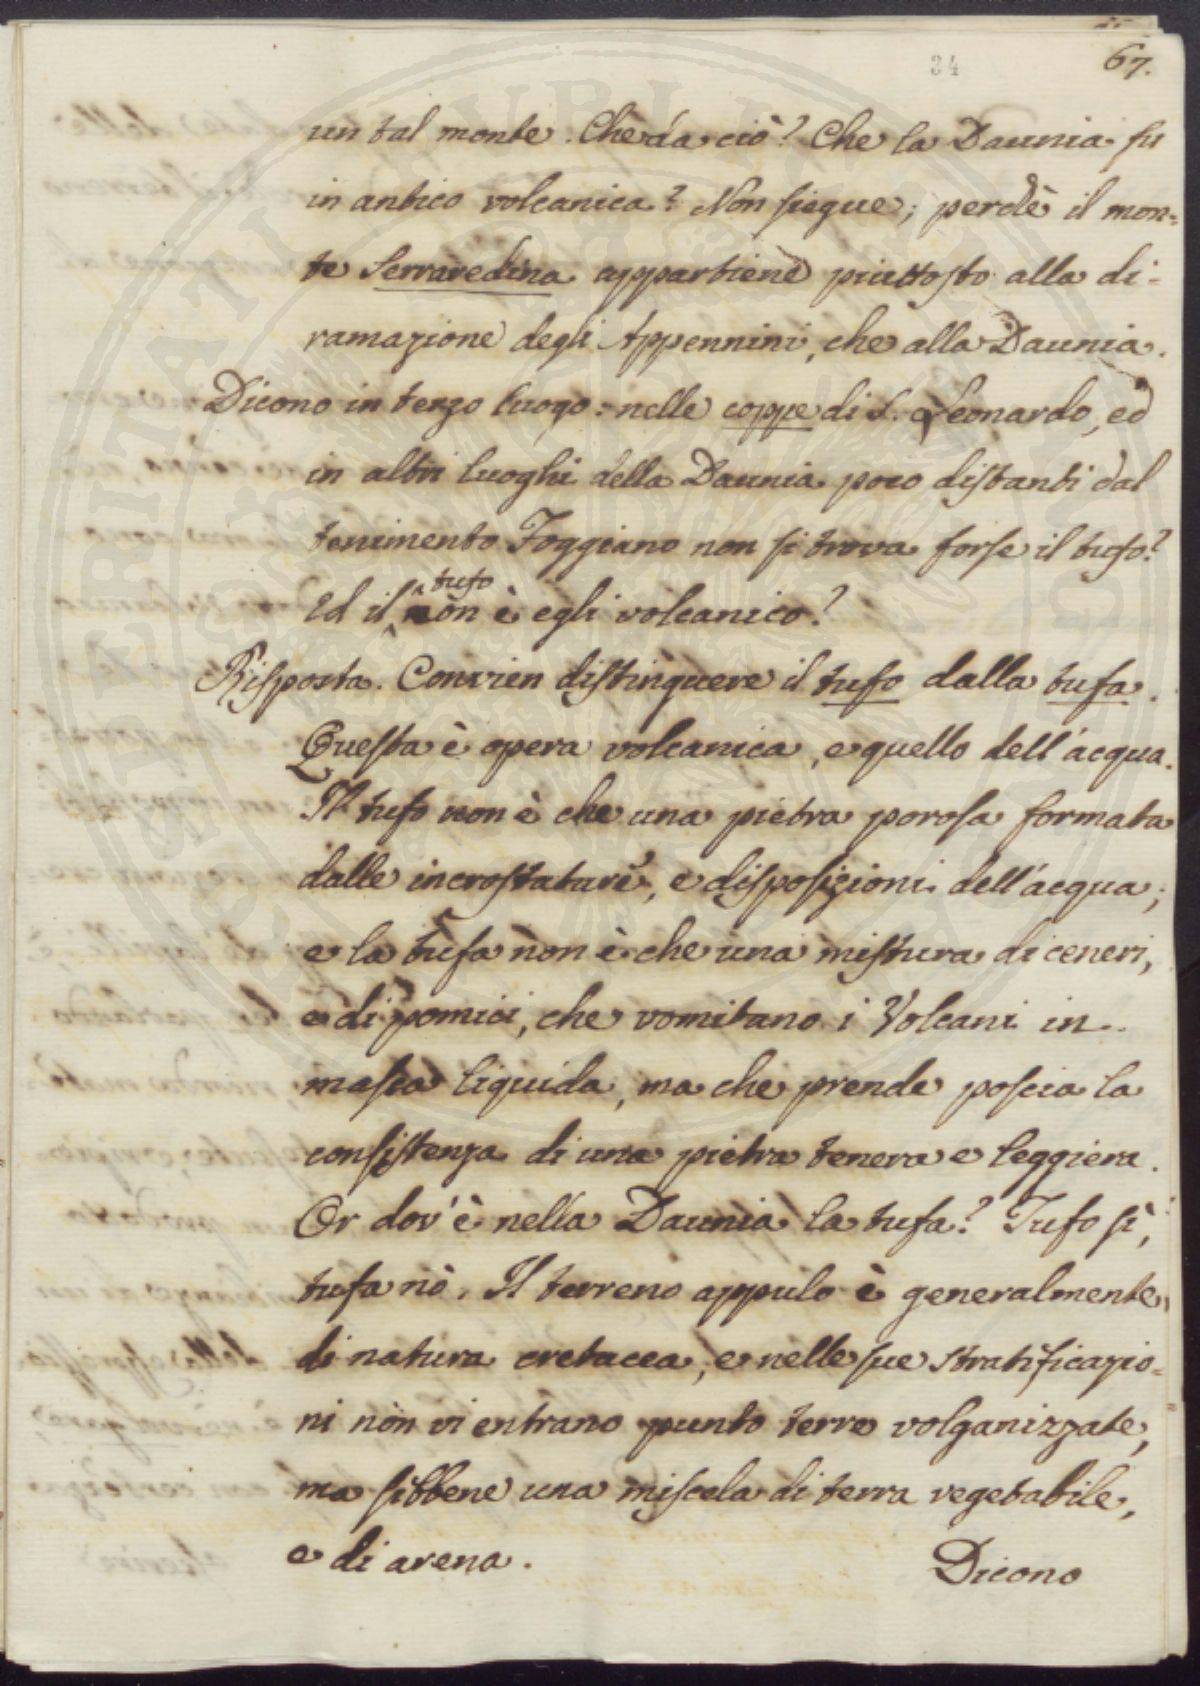 34
67.
un tal monte. Che da ciò? Che la Daunia fu
in antico volcanica? Non siegue; perchè il mon=
te Serravedina appartiene piuttosto alla di=
ramazione degli Appennini, che alla Daunia.
Dicono in terzo luogo: nelle coppe di S. Leonardo, ed
in altri luoghi della Daunia poco distanti dal
tenimento Foggiano non si trova forse il tufo?
Ed il tufo non è egli volcanico?
Risposta. Convien distinguere il tufo dalla tufa.
Questa è opera volcanica, e quello dell'acqua.
Il tufo non è che una pietra porosa formata
dalle incrostature, e disposizioni dell'acqua;
e la tufa non è che una mistura di ceneri,
e di pomici, che vomitano i Volcani in
massa liquida, ma che prende poscia la
consistenza di una pietra tenera e leggiera.
Or dov'è nella Daunia la tufa? Tufo sì,
tufa nò. Il terreno appulo è generalmente
di natura cretacea, e nelle sue stratificazio=
ni non vi entrano punto terre volganizzate,
ma sibbene una miscela di terra vegetabile,
e di arena.
Dicono